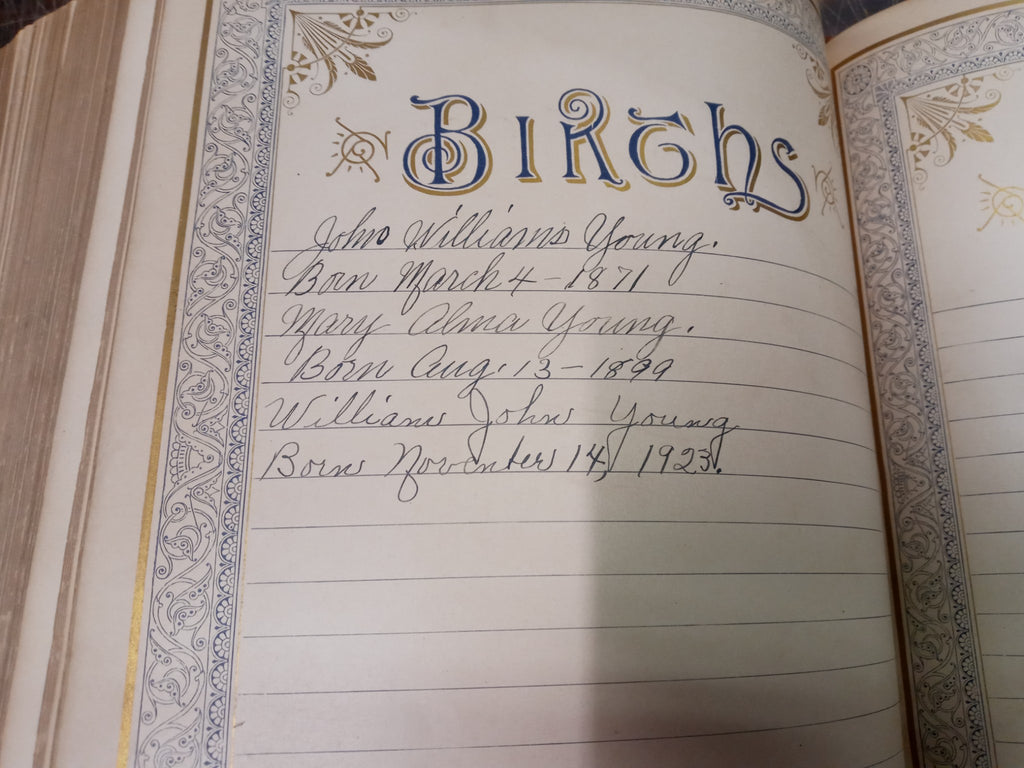 Births
John William Young.
Born March 4 - 1871
Mary Alma Young.
Born Aug. 13 - 1899
William John Young
Born November 14, 1923.